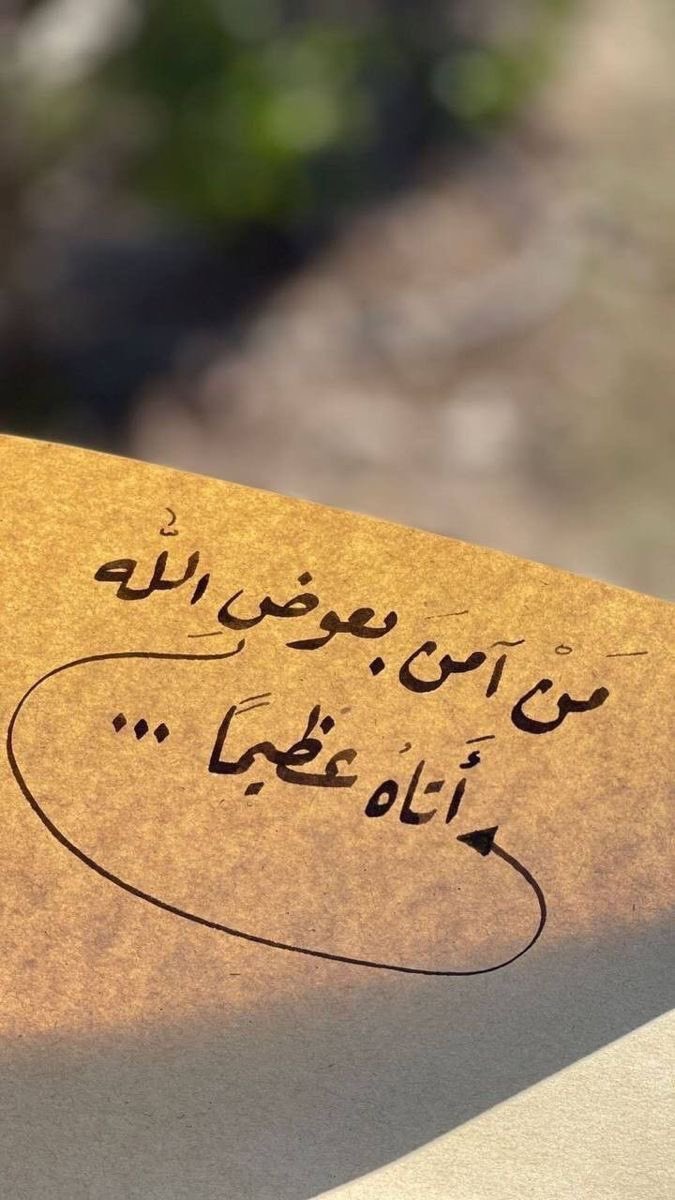 مَنْ آمنَ بعوضِ اللّٰه
أَتاهُ عَظيمًا ...